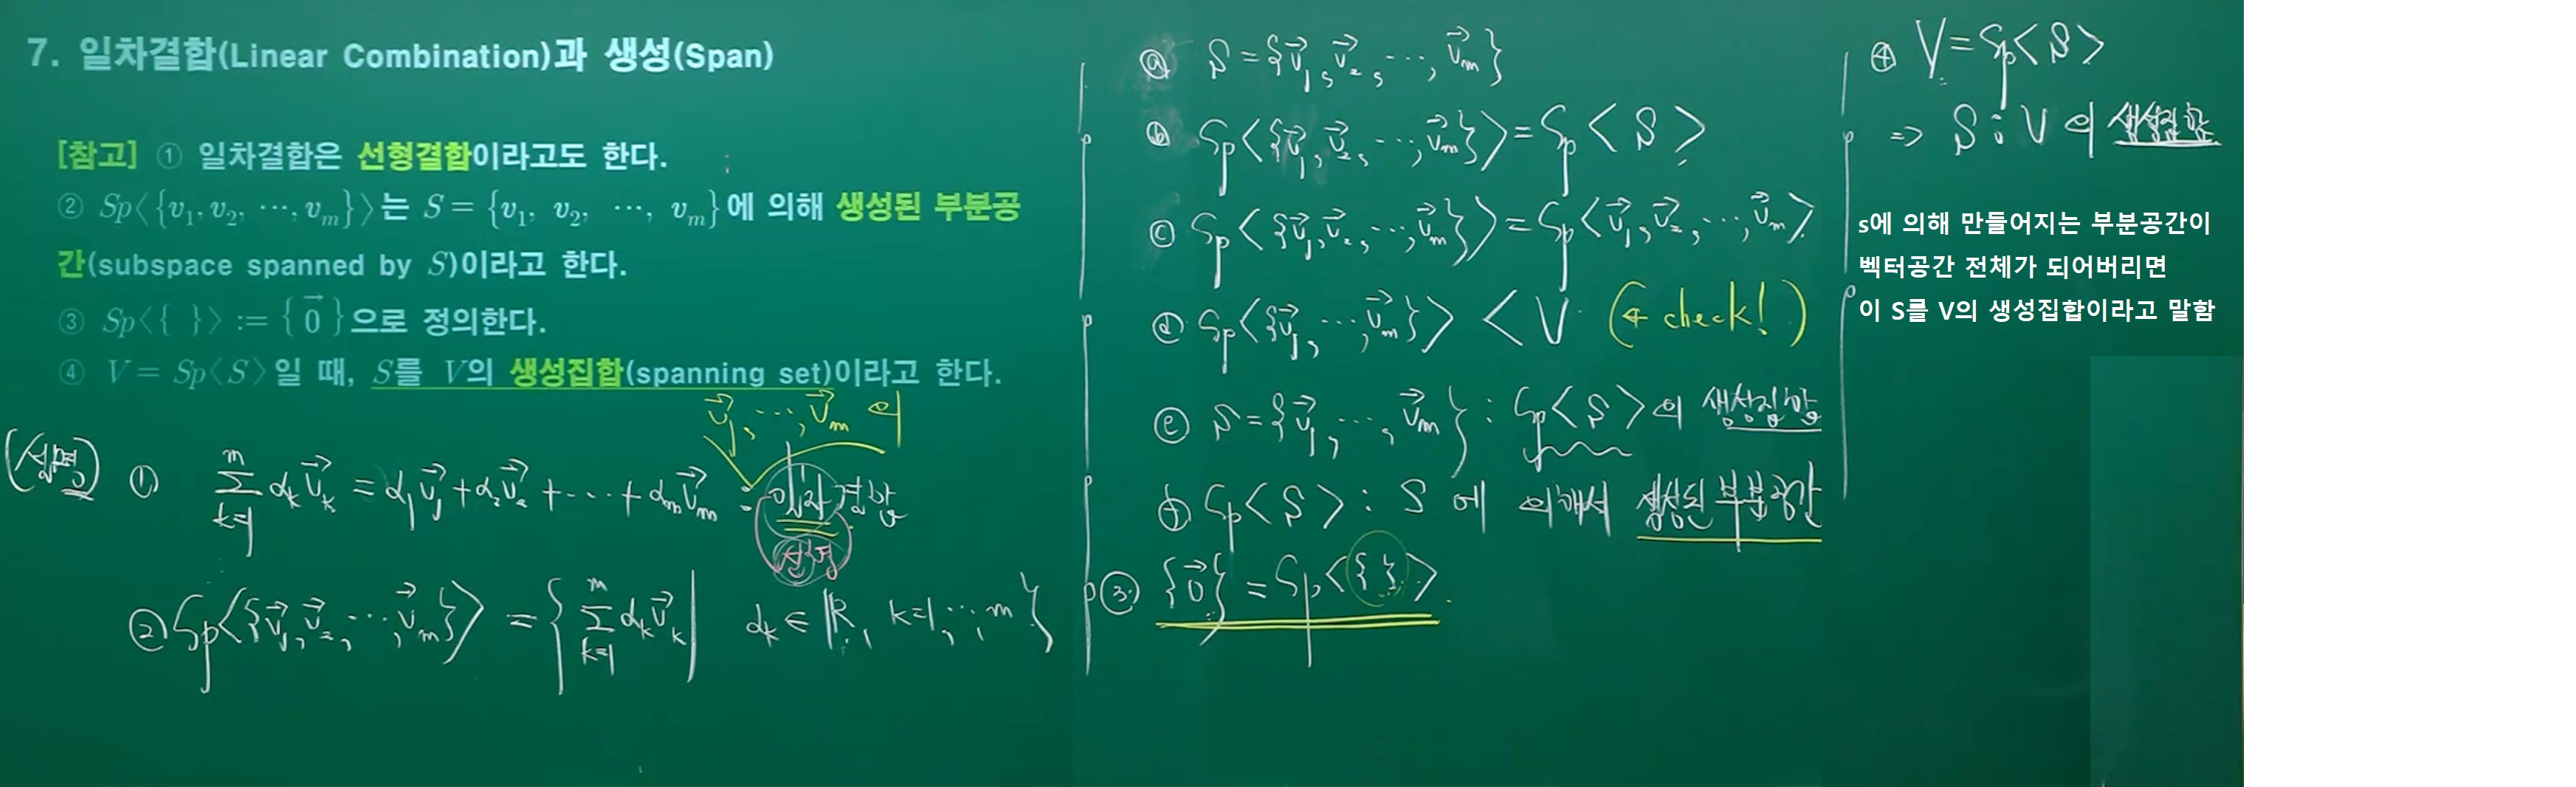 7. 일차결합(Linear Combination)과 생성(Span)
[참고] ① 일차결합은 선형결합이라고도 한다.
② Sp⟨{v₁, v₂, ⋯, vₘ}⟩는 S = {v₁, v₂, ⋯, vₘ}에 의해 생성된 부분공
간(subspace spanned by S)이라고 한다.
③ Sp⟨{ }⟩ := {0⃗}으로 정의한다.
④ V = Sp⟨S⟩일 때, S를 V의 생성집합(spanning set)이라고 한다.
v⃗₁, ⋯, v⃗ₘ 의
(설명) ① ∑ₖ₌₁ᵐ αₖv⃗ₖ = α₁v⃗₁ + α₂v⃗₂ + ⋯ + αₘv⃗ₘ : 일차결합
선형
② Sp⟨{v⃗₁, v⃗₂, ⋯, v⃗ₘ}⟩ = {∑ₖ₌₁ᵐ αₖv⃗ₖ | αₖ ∈ ℝ, k=1, ⋯, m}
ⓐ S = {v⃗₁, v⃗₂, ⋯, v⃗ₘ}
ⓑ Sp⟨{v⃗₁, v⃗₂, ⋯, v⃗ₘ}⟩ = Sp⟨S⟩
ⓒ Sp⟨{v⃗₁, v⃗₂, ⋯, v⃗ₘ}⟩ = Sp⟨v⃗₁, v⃗₂, ⋯, v⃗ₘ⟩
ⓓ Sp⟨{v⃗₁, ⋯, v⃗ₘ}⟩ < V (← check!)
ⓔ S = {v⃗₁, ⋯, v⃗ₘ} : Sp⟨S⟩의 생성집합
ⓕ Sp⟨S⟩ : S에 의해서 생성된 부분공간
③ {0⃗} = Sp⟨{ }⟩
④ V = Sp⟨S⟩
⇒ S : V의 생성집합
s에 의해 만들어지는 부분공간이
벡터공간 전체가 되어버리면
이 S를 V의 생성집합이라고 말함